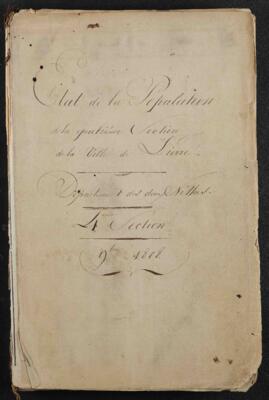 Etat de la Population
de la quatrième Section
de la Ville de Lierre.
Département des deux Nèthes.
4me Section
9bre 1808